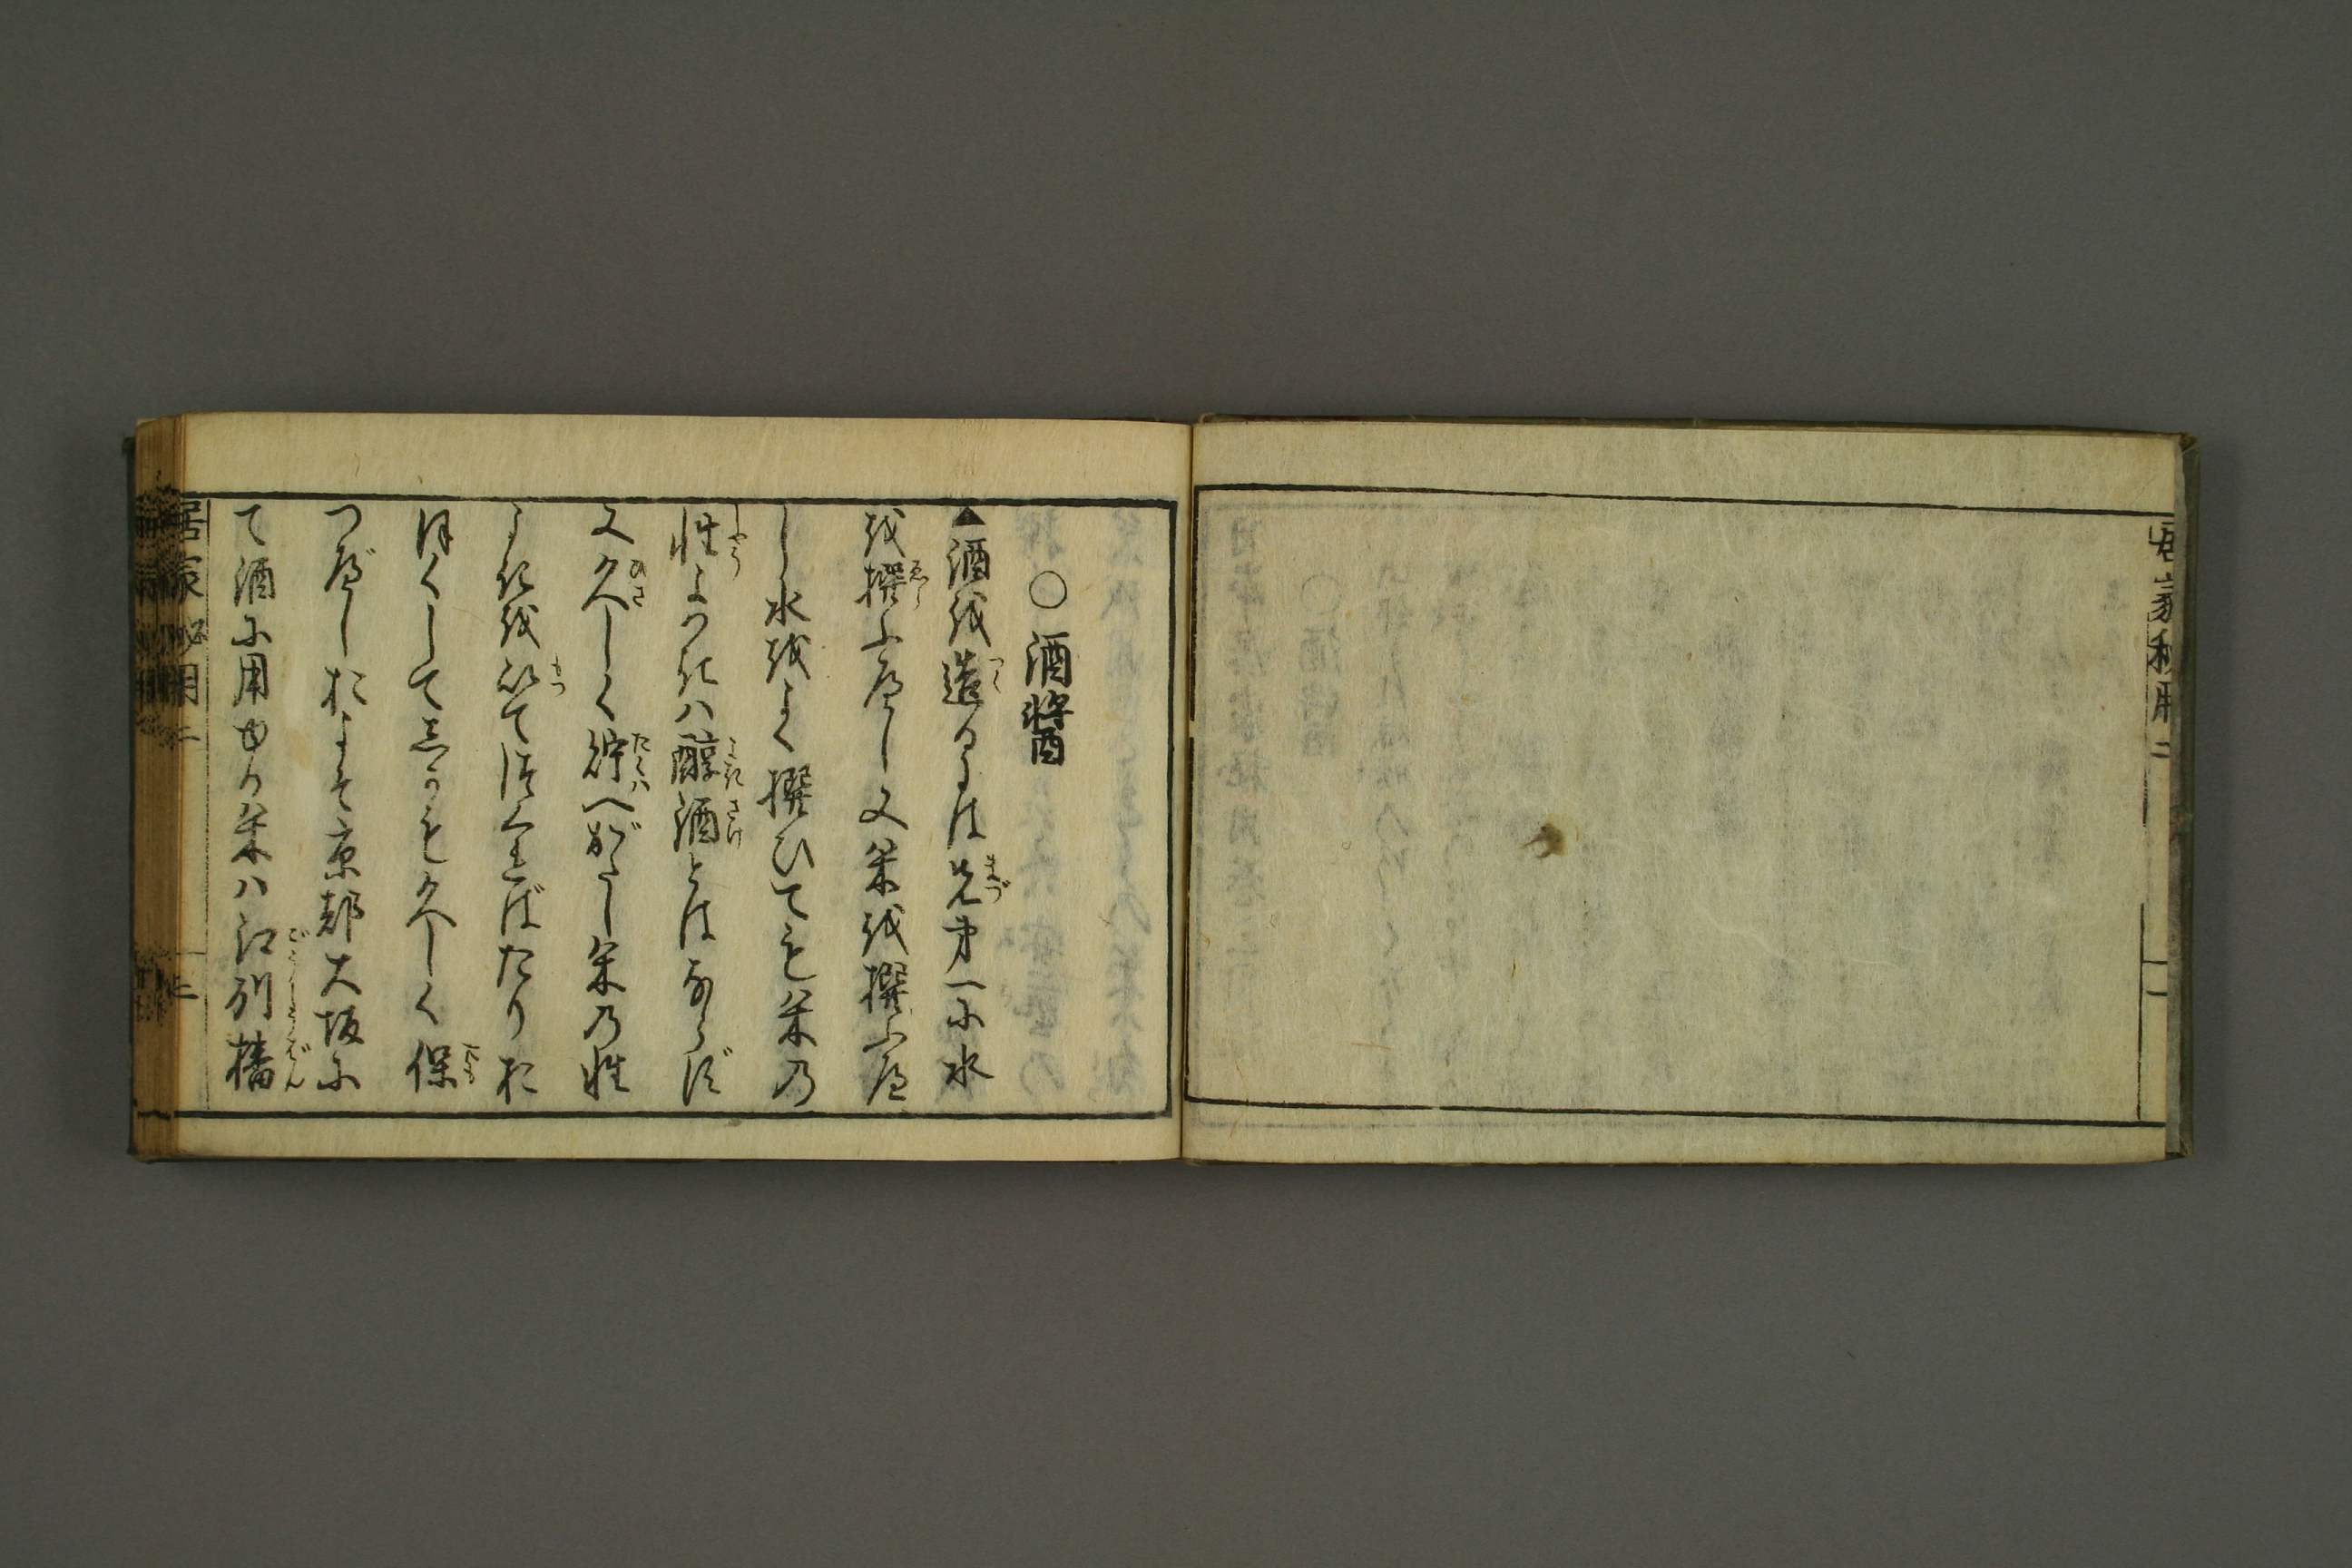 居家秘用二
一
○酒醬
▲酒を造るには先第一に水
を撰ふべし又米を撰ふべ
し水をよく撰ひても米の
性よからねハ醇酒とはならず
又久しく貯へがたし米の性
よきを以て造くればたりお
ほくして又久しく保
つべしおよそ京都大坂に
て酒に用ゆる米ハ江州播
居家必用二
二